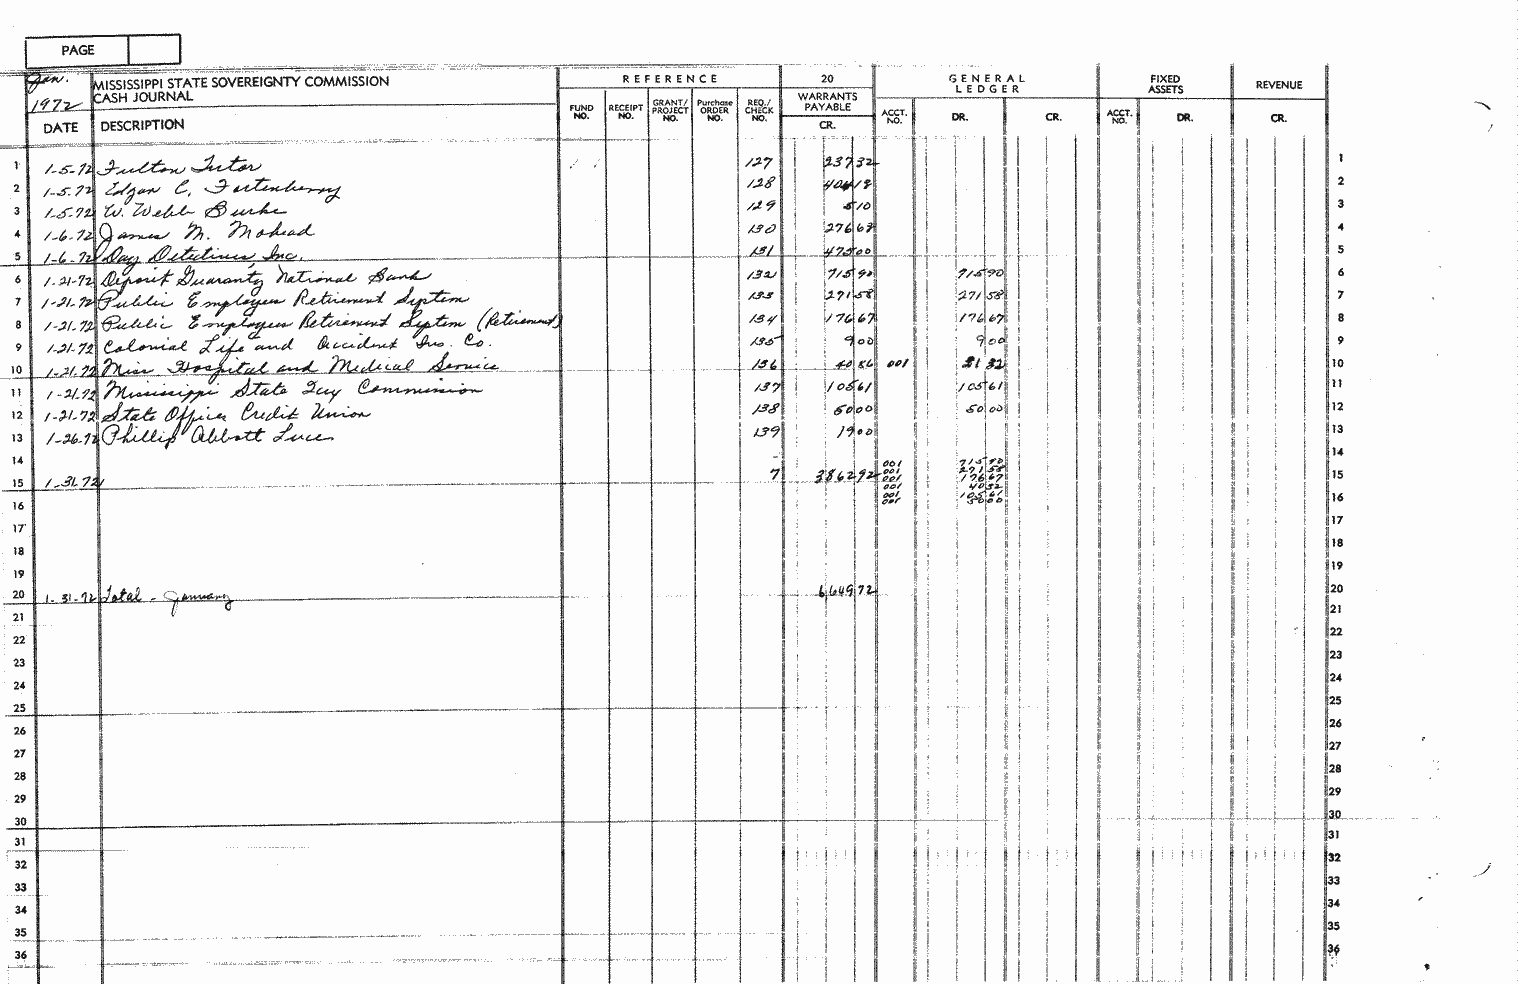 PAGE
Jan. 1972
MISSISSIPPI STATE SOVEREIGNTY COMMISSION
CASH JOURNAL
DATE DESCRIPTION
REFERENCE
FUND NO. RECEIPT NO. GRANT/PROJECT NO. Purchase ORDER NO. REQ./CHECK NO.
20 WARRANTS PAYABLE CR.
GENERAL LEDGER
ACCT. NO. DR. CR.
FIXED ASSETS
ACCT. NO. DR.
REVENUE
CR.
1 1-5-72 Fulton Tutor 127 237 32 1
2 1-5-72 Edgar C. Fortenberry 128 404 18 2
3 1-5-72 W. Webb Burke 129 5 10 3
4 1-6-72 James M. Mohead 130 276 63 4
5 1-6-72 Day Detectives, Inc. 131 475 00 5
6 1-21-72 Deposit Guaranty National Bank 132 715 90 715 90 6
7 1-21-72 Public Employees Retirement System 133 271 58 271 58 7
8 1-21-72 Public Employees Retirement System (Retirement) 134 176 67 176 67 8
9 1-21-72 Colonial Life and Accident Ins. Co. 135 9 00 9 00 9
10 1-21-72 Miss Hospital and Medical Service 136 001 10
11 1-21-72 Mississippi State Tax Commission 137 105 61 105 61 11
12 1-21-72 State Offices Credit Union 138 50 00 50 00 12
13 1-26-72 Phillip Abbott Luce 139 19 00 13
14 001 715 90 14
001 271 58
15 1-31-72 7 3862 92 001 176 67 15
001
16 001 105 61 16
001 50 00
17 17
18 18
19 19
20 1-31-72 Total - January 6,649 72 20
21 21
22 22
23 23
24 24
25 25
26 26
27 27
28 28
29 29
30 30
31 31
32 32
33 33
34 34
35 35
36 36